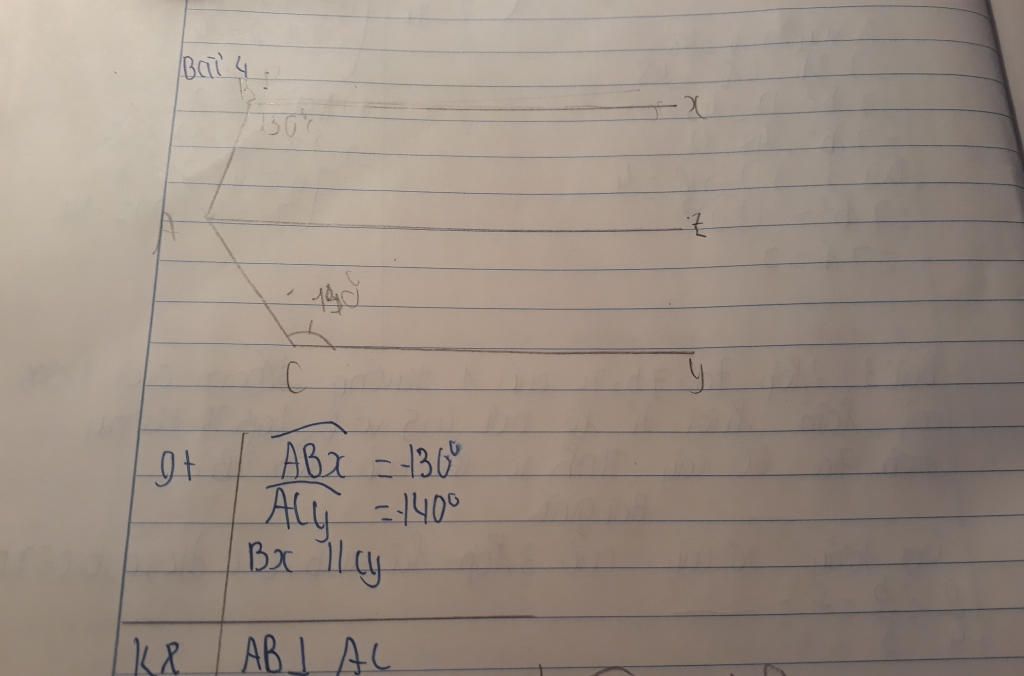 Bài 4
B
x
130°
A
z
140°
C
y
gt
ABx = 130°
ACy = 140°
Bx // cy
Kl
AB ⊥ AC